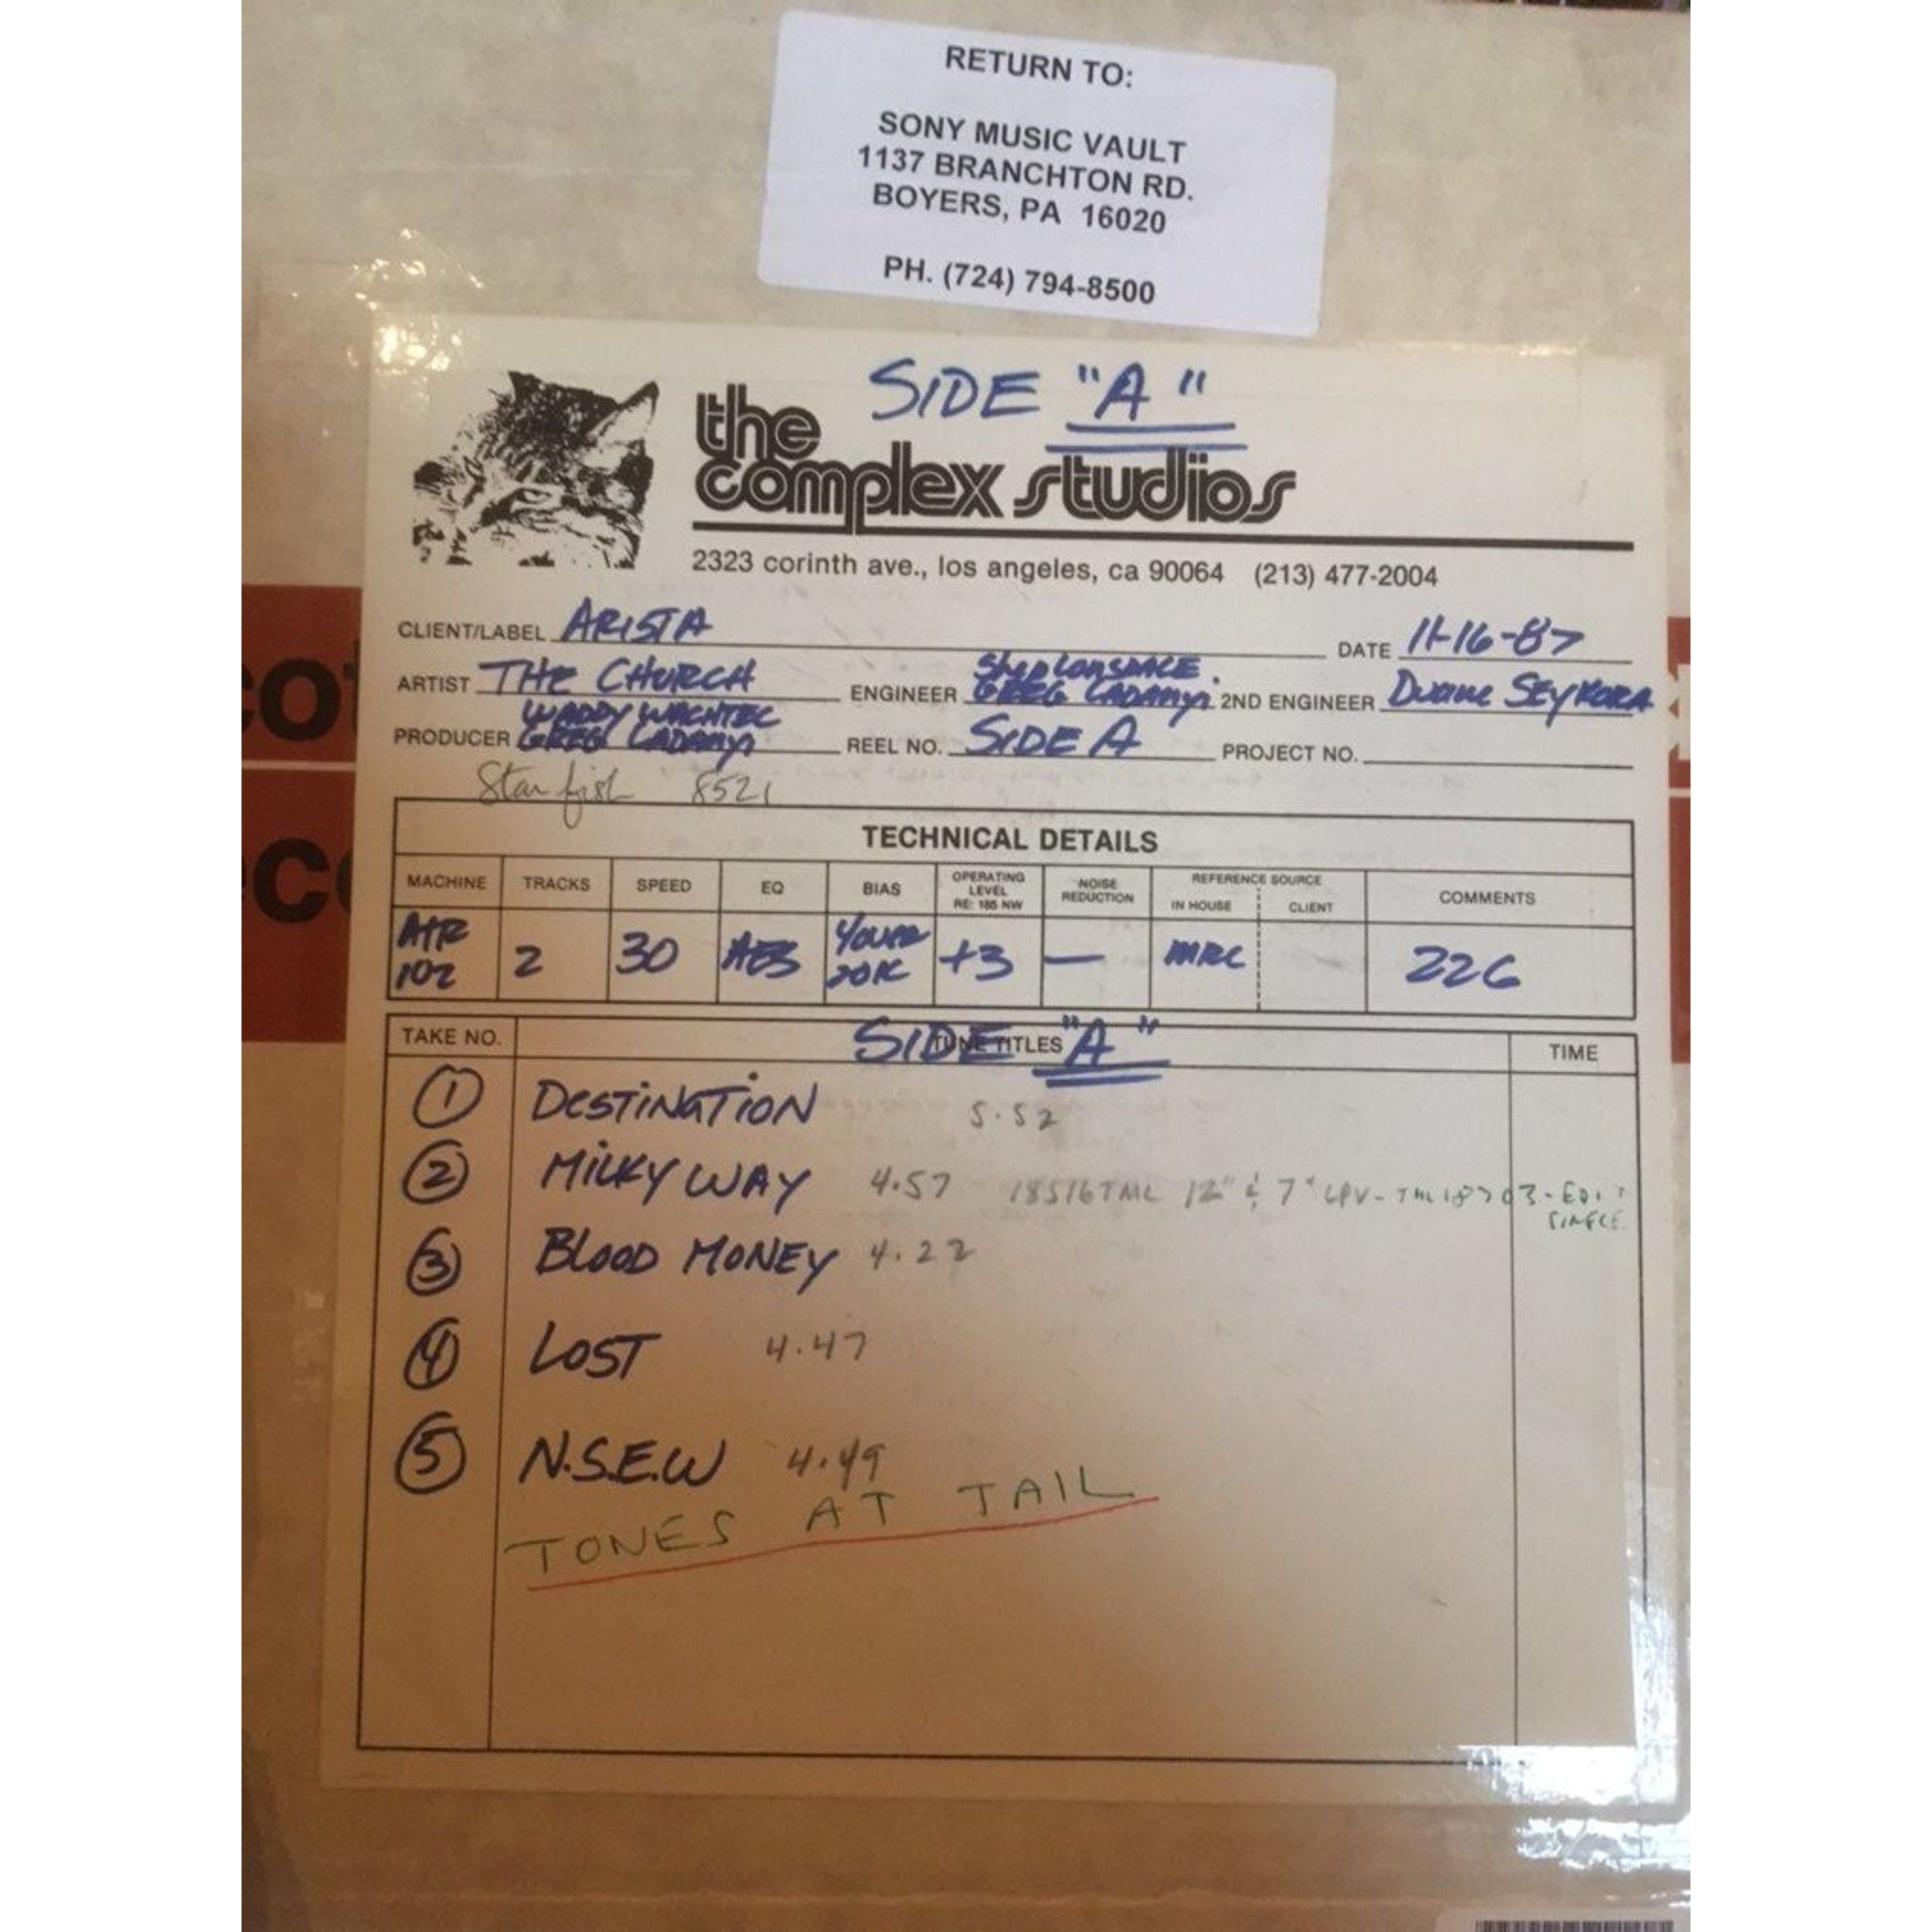 RETURN TO:
SONY MUSIC VAULT
1137 BRANCHTON RD.
BOYERS, PA 16020
PH. (724) 794-8500
SIDE "A"
the
complex studios
2323 corinth ave., los angeles, ca 90064 (213) 477-2004
CLIENT/LABEL ARISTA DATE 11-16-87
Shep LONSDALE.
ARTIST THE CHURCH ENGINEER GREG LADANYI 2ND ENGINEER Duane SEYKORA
WADDY WACHTEL
PRODUCER GREG LADANYI REEL NO. SIDE A PROJECT NO.
Starfish 8521
TECHNICAL DETAILS
MACHINE TRACKS SPEED EQ BIAS OPERATING LEVEL RE: 185 NW NOISE REDUCTION REFERENCE SOURCE IN HOUSE CLIENT COMMENTS
ATR 102 2 30 AES 20K +3 — MRL 226
SIDE "A"
TAKE NO. TUNE TITLES TIME
1 DESTINATION 5.52
2 MILKY WAY 4.57 18516TML 12" & 7" - EDIT
SINGLE
3 BLOOD MONEY 4.22
4 LOST 4.47
5 N.S.E.W 4.49
TONES AT TAIL